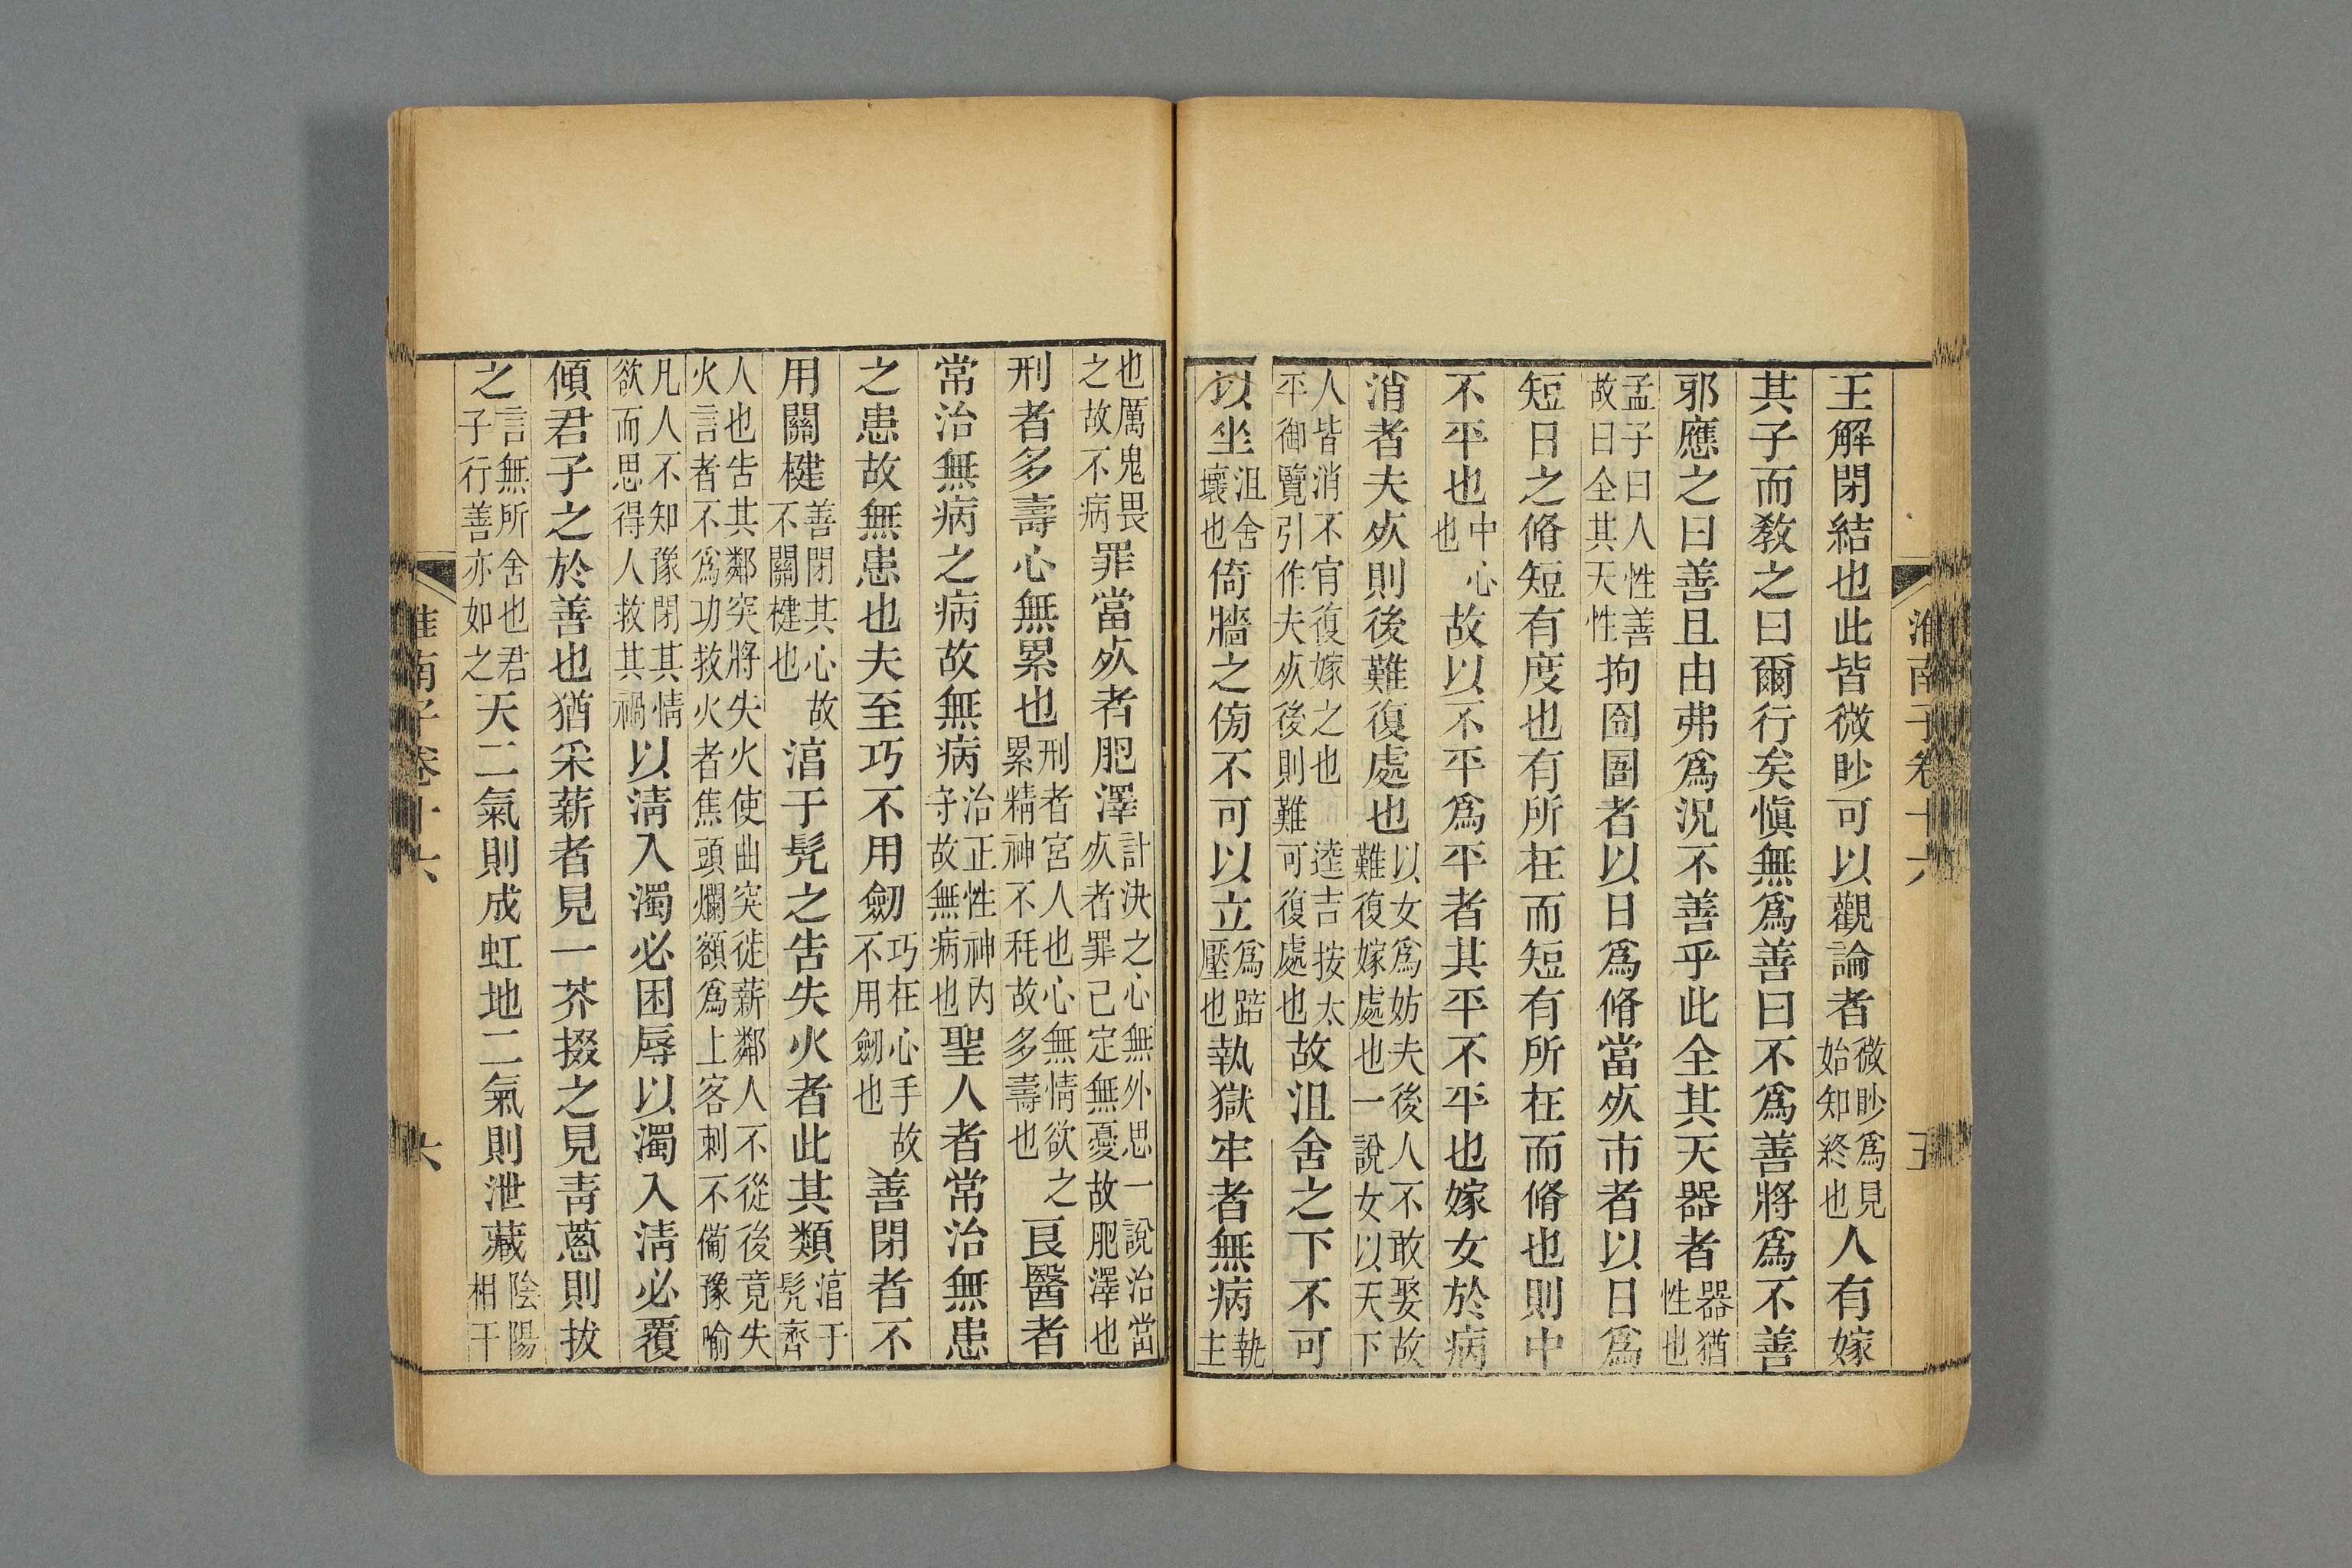 淮南子卷十六
五
王解閉結也此皆微眇可以觀論者微眇爲見始知終也人有嫁
其子而敎之曰爾行矣愼無爲善曰不爲善將爲不善
邪應之曰善且由弗爲況不善乎此全其天器者器猶性也
孟子曰人性善故曰全其天性拘囹圄者以日爲脩當㱙市者以日爲
短日之脩短有度也有所在而短有所在而脩也則中
不平也中心也故以不平爲平者其平不平也嫁女於病
消者夫㱙則後難復處也以女爲妨夫後人不敢娶故難復嫁處也一說女以天下
人皆消不肎復嫁之也逵吉按太平御覽引作夫㱙後則難可復處也故沮舍之下不可
以坐沮舍壞也倚牆之傍不可以立爲踣壓也執獄牢者無病執主
也厲鬼畏之故不病罪當㱙者肥澤計決之心無外思一說治當㱙者罪已定無憂故肥澤也
刑者多壽心無累也刑者宮人也心無情欲之累精神不秏故多壽也良醫者
常治無病之病故無病治正性神內守故無病也聖人者常治無患
之患故無患也夫至巧不用劒巧在心手故不用劒也善閉者不
用關楗善閉其心故不關楗也淳于髡之告失火者此其類淳于髡齊
人也告其鄰突將失火使曲突徙薪鄰人不從後竟失火言者不爲功救火者焦頭爛額爲上客刺不備豫喻
凡人不知豫閉其情欲而思得人救其禍以淸入濁必困辱以濁入淸必覆
傾君子之於善也猶采薪者見一芥掇之見靑蔥則拔
之言無所舍也君子行善亦如之天二氣則成虹地二氣則泄藏陰陽相干
淮南子卷十六
六